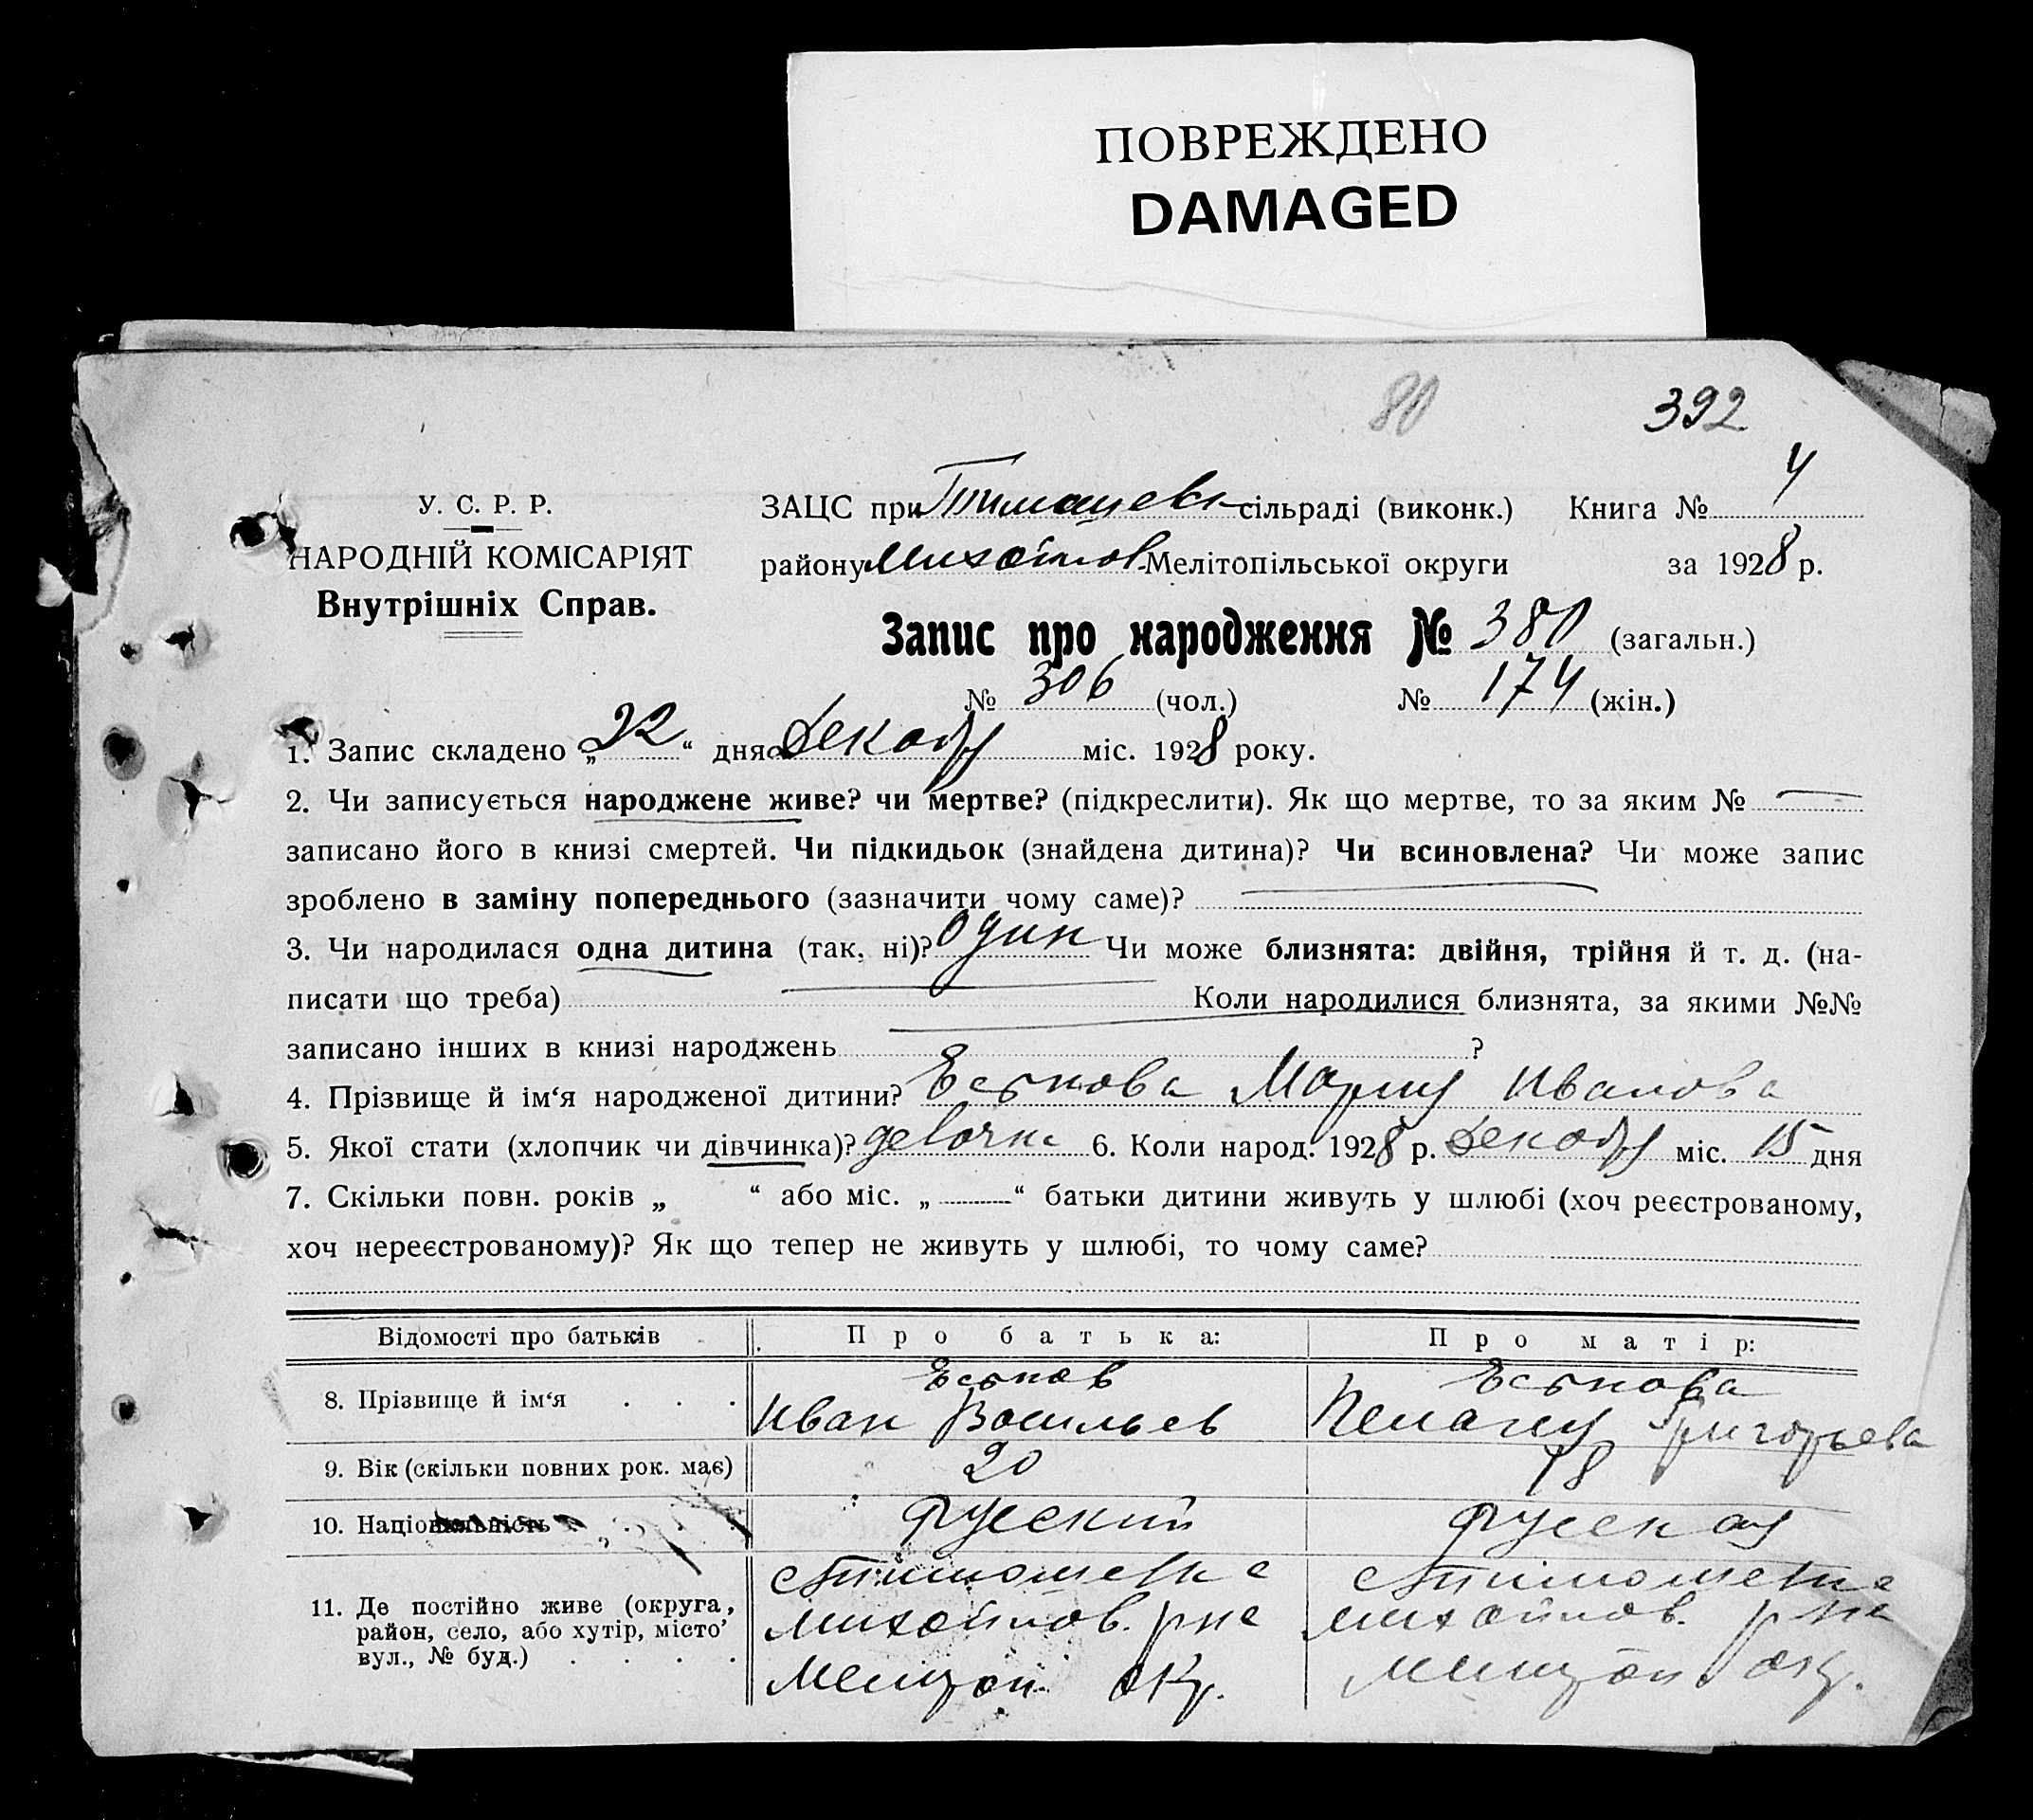 ПОВРЕЖДЕНО
DAMAGED
80
392
У. С. Р. Р.
НАРОДНІЙ КОМІСАРІЯТ
Внутрішніх Справ.
ЗАЦС при Тимашевк сільраді (виконк.) Книга № 4
району Михайлов. Мелітопільської округи за 1928 р.
Запис про народження № 380 (загальн.)
№ 306 (чол.) № 174 (жін.)
1. Запис складено „22“ дня Декабря міс. 1928 року.
2. Чи записується народжене живе? чи мертве? (підкреслити). Як що мертве, то за яким №
записано його в книзі смертей. Чи підкидьок (знайдена дитина)? Чи всиновлена? Чи може запис
зроблено в заміну попереднього (зазначити чому саме)?
3. Чи народилася одна дитина (так, ні)? один Чи може близнята: двійня, трійня й т. д. (на-
писати що треба) Коли народилися близнята, за якими №№
записано інших в книзі народжень ?
4. Прізвище й ім‘я народженої дитини? Еськова Мария Иванова
5. Якої стати (хлопчик чи дівчинка)? девочка 6. Коли народ. 1928 р. Декабря міс. 15 дня
7. Скільки повн. років „ “ або міс. „ “ батьки дитини живуть у шлюбі (хоч реєстрованому,
хоч нереєстрованому)? Як що тепер не живуть у шлюбі, то чому саме?
Відомості про батьків Про батька: Про матір:
8. Прізвище й ім‘я Еськов Иван Васильев Еськова Пелагия Григорьева
9. Вік (скільки повних рок. має) 20 18
10. Національність Русский Русская
11. Де постійно живе (округа,
район, село, або хутір, місто
вул., № буд.)
с Тимошевка
Михайлов. р-на
Мелитоп. окр.
с Тимошевка
Михайлов. р-на
Мелитоп. окр.